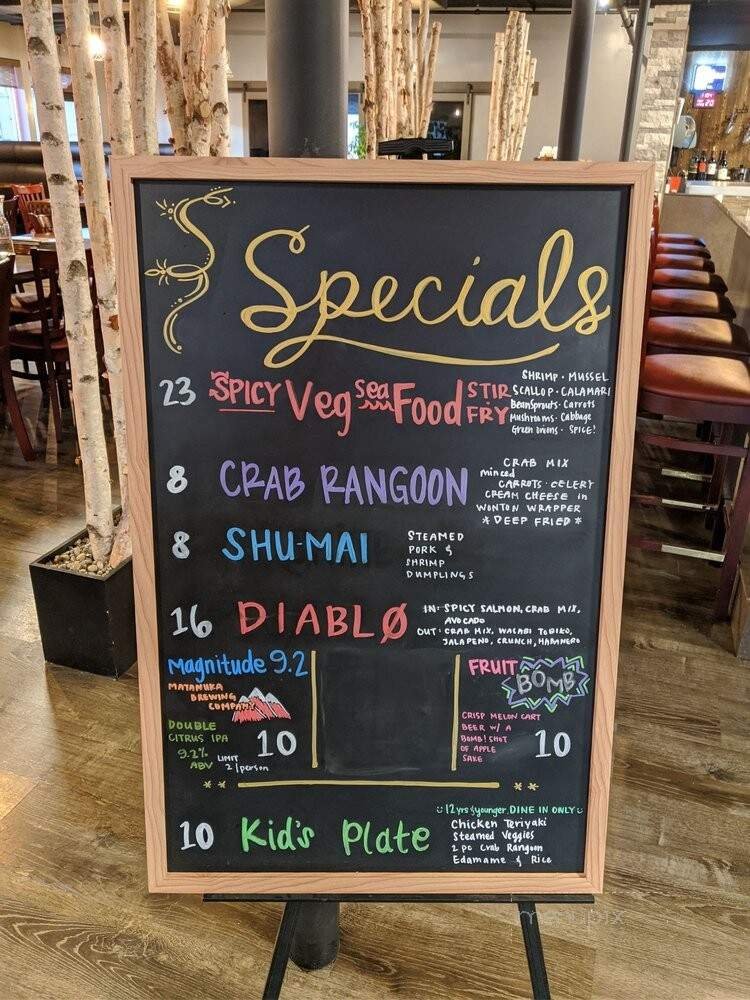 Specials
23 SPICY Veg sea Food STIR FRY
SHRIMP · MUSSEL
SCALLOP · CALAMARI
BeanSprouts · Carrots
Mushrooms · Cabbage
Green Onions · SPICE!
8 CRAB RANGOON
CRAB MIX
minced
CARROTS · CELERY
CREAM CHEESE in
WONTON WRAPPER
* DEEP FRIED *
8 SHU-MAI
STEAMED
PORK &
SHRIMP
DUMPLINGS
16 DIABLØ
IN: SPICY SALMON, CRAB MIX,
AVOCADO
OUT: CRAB MIX, WASABI TOBIKO,
JALAPENO, CRUNCH, HABNERO
Magnitude 9.2
MATANUKA
BREWING
COMPANY
DOUBLE
CITRUS IPA
9.2%
ABV
LIMIT
2/person
10
FRUIT BOMB
CRISP MELON CART
BEER W/ A
BOMB! SHOT
OF APPLE
SAKE
10
10 Kid's Plate
12yrs & younger. DINE IN ONLY
Chicken Teriyaki
Steamed Veggies
2 pc Crab Rangoon
Edamame & Rice